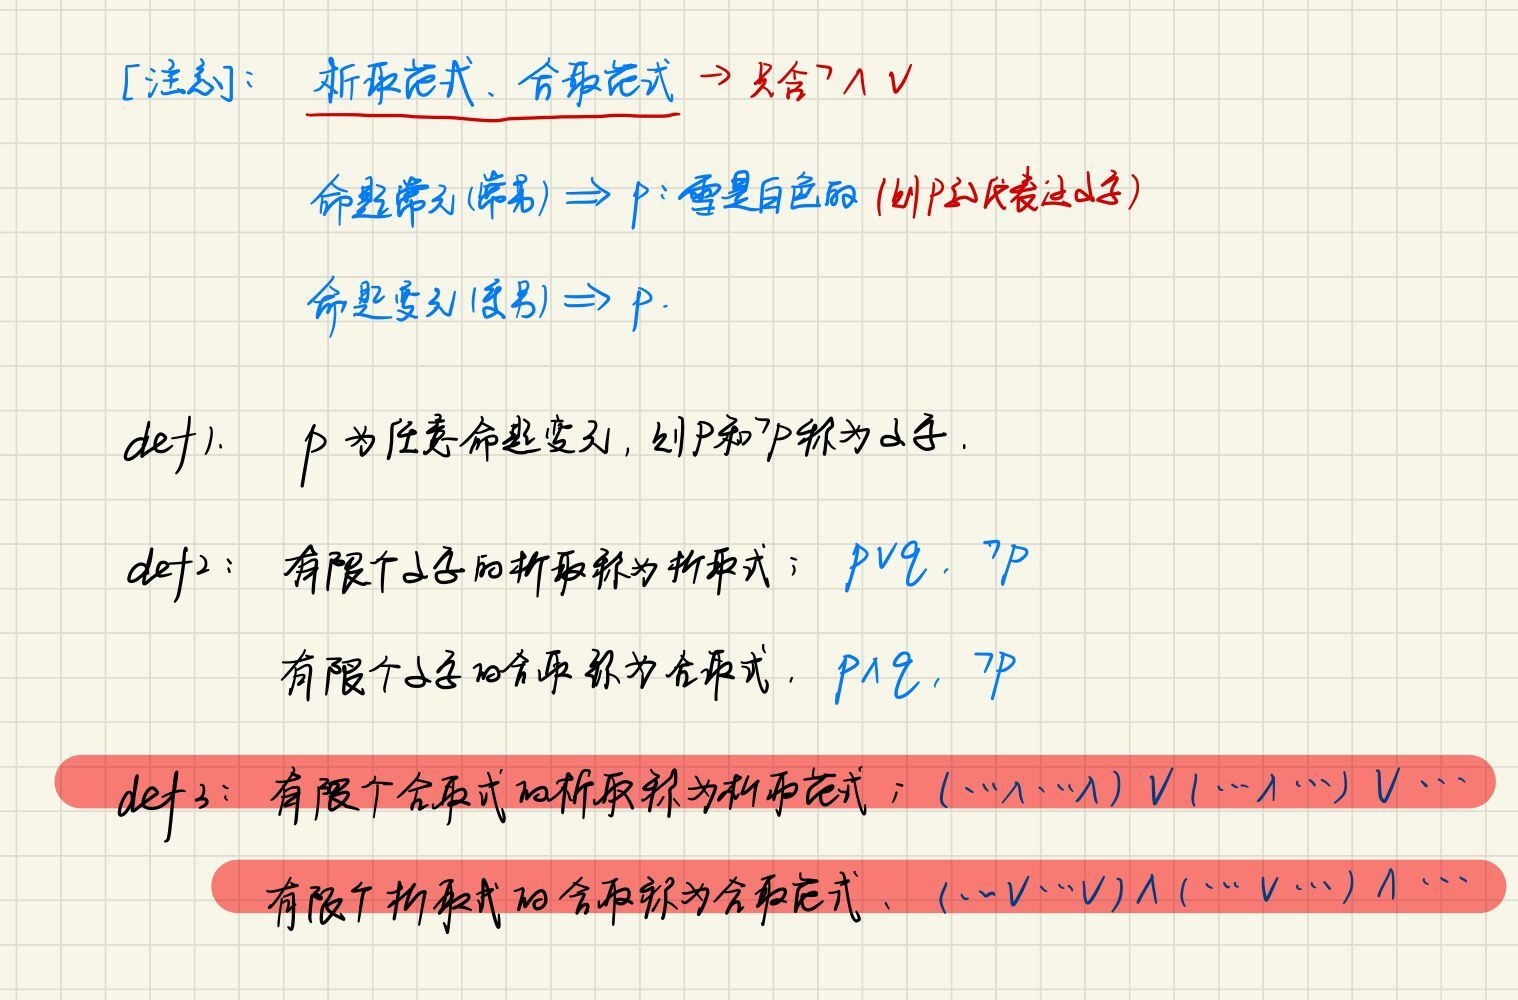 [注意]: 析取范式、合取范式 → 只含¬ ∧ ∨
命题常元(常号) ⇒ p: 雪是白色的 (则P代表这句子)
命题变元(变号) ⇒ p.
def1. p 为任意命题变元, 则P和¬P称为文字.
def2: 有限个文字的析取称为析取式; p∨q, ¬p
有限个文字的合取称为合取式. p∧q, ¬p
def3: 有限个合取式的析取称为析取范式; (…∧…∧) ∨ (…∧…) ∨ …
有限个析取式的合取称为合取范式. (…∨…∨) ∧ (…∨…) ∧ …